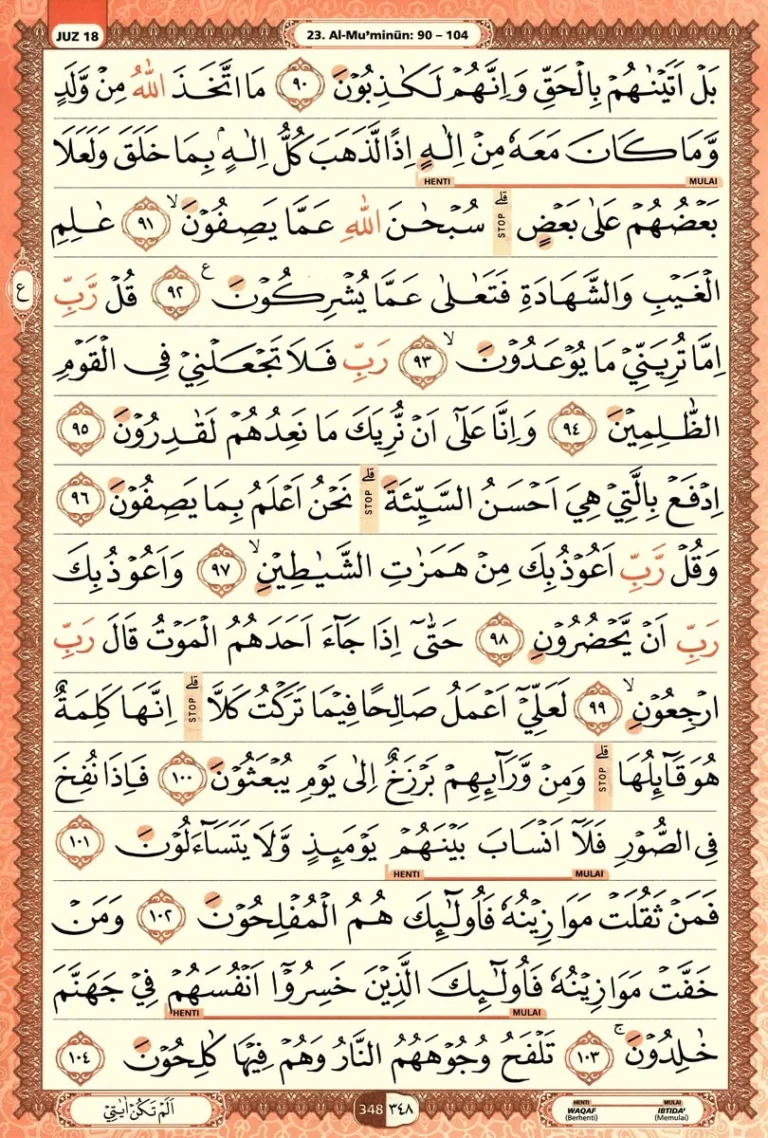 JUZ 18
23. Al-Mu'minūn: 90 – 104
بَلْ اَتَيْنٰهُمْ بِالْحَقِّ وَاِنَّهُمْ لَكٰذِبُوْنَ ٩٠ مَا اتَّخَذَ اللّٰهُ مِنْ وَّلَدٍ
وَّمَا كَانَ مَعَهٗ مِنْ اِلٰهٍ اِذًا لَّذَهَبَ كُلُّ اِلٰهٍۢ بِمَا خَلَقَ وَلَعَلَا
HENTI MULAI
بَعْضُهُمْ عَلٰى بَعْضٍۗ STOP سُبْحٰنَ اللّٰهِ عَمَّا يَصِفُوْنَۙ ٩١ عٰلِمِ
الْغَيْبِ وَالشَّهَادَةِ فَتَعٰلٰى عَمَّا يُشْرِكُوْنَ ࣖ ٩٢ قُلْ رَّبِّ
ع
اِمَّا تُرِيَنِّيْ مَا يُوْعَدُوْنَۙ ٩٣ رَبِّ فَلَا تَجْعَلْنِيْ فِى الْقَوْمِ
الظّٰلِمِيْنَ ٩٤ وَاِنَّا عَلٰٓى اَنْ نُّرِيَكَ مَا نَعِدُهُمْ لَقٰدِرُوْنَ ٩٥
اِدْفَعْ بِالَّتِيْ هِيَ اَحْسَنُ السَّيِّئَةَۗ STOP نَحْنُ اَعْلَمُ بِمَا يَصِفُوْنَ ٩٦
وَقُلْ رَّبِّ اَعُوْذُ بِكَ مِنْ هَمَزٰتِ الشَّيٰطِيْنِۙ ٩٧ وَاَعُوْذُ بِكَ
رَبِّ اَنْ يَّحْضُرُوْنِ ٩٨ حَتّٰٓى اِذَا جَاۤءَ اَحَدَهُمُ الْمَوْتُ قَالَ رَبِّ
ارْجِعُوْنِۙ ٩٩ لَعَلِّيْٓ اَعْمَلُ صَالِحًا فِيْمَا تَرَكْتُ كَلَّاۗ STOP اِنَّهَا كَلِمَةٌ
هُوَ قَاۤىِٕلُهَاۗ STOP وَمِنْ وَّرَاۤىِٕهِمْ بَرْزَخٌ اِلٰى يَوْمِ يُبْعَثُوْنَ ١٠٠ فَاِذَا نُفِخَ
فِى الصُّوْرِ فَلَآ اَنْسَابَ بَيْنَهُمْ يَوْمَىِٕذٍ وَّلَا يَتَسَاۤءَلُوْنَ ١٠١
HENTI MULAI
فَمَنْ ثَقُلَتْ مَوَازِيْنُهٗ فَاُولٰۤىِٕكَ هُمُ الْمُفْلِحُوْنَ ١٠٢ وَمَنْ
خَفَّتْ مَوَازِيْنُهٗ فَاُولٰۤىِٕكَ الَّذِيْنَ خَسِرُوْٓا اَنْفُسَهُمْ فِيْ جَهَنَّمَ
HENTI MULAI
خٰلِدُوْنَۚ ١٠٣ تَلْفَحُ وُجُوْهَهُمُ النَّارُ وَهُمْ فِيْهَا كٰلِحُوْنَ ١٠٤
اَلَمْ تَكُنْ اٰيٰتِيْ
348 ٣٤٨
HENTI MULAI
WAQAF IBTIDA'
(Berhenti) (Memulai)